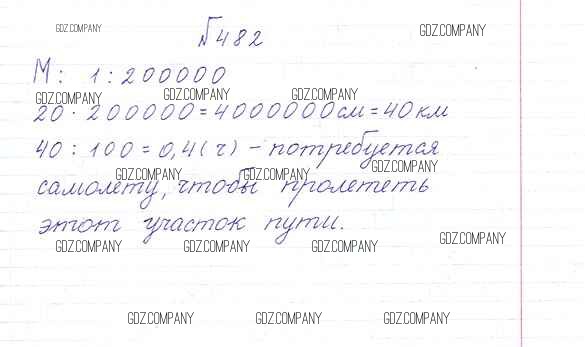 GDZ.COMPANY
№482
GDZ.COMPANY
М: 1:200000
GDZ.COMPANY GDZ.COMPANY GDZ.COMPANY
20 · 200000 = 4000000 см = 40 км
40 : 100 = 0,4 (ч) - потребуется
GDZ.COMPANY GDZ.COMPANY GDZ.COMPANY
самолету, чтобы пролететь
этот участок пути.
GDZ.COMPANY GDZ.COMPANY GDZ.COMPANY GDZ.COMPANY
GDZ.COMPANY GDZ.COMPANY GDZ.COMPANY